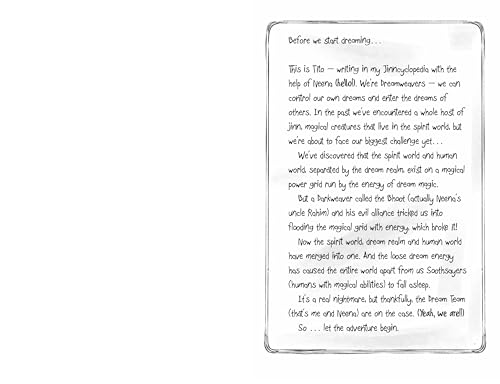 Before we start dreaming...
This is Tito – writing in my Jinncyclopedia with the
help of Neena (hello!). We're Dreamweavers – we can
control our own dreams and enter the dreams of
others. In the past we've encountered a whole host of
jinn, magical creatures that live in the spirit world, but
we're about to face our biggest challenge yet...
We've discovered that the spirit world and human
world, separated by the dream realm, exist on a magical
power grid run by the energy of dream magic.
But a Darkweaver called the Bhoot (actually Neena's
uncle Rahim) and his evil alliance tricked us into
flooding the magical grid with energy, which broke it!
Now the spirit world, dream realm and human world
have merged into one. And the loose dream energy
has caused the entire world apart from us Soothsayers
(humans with magical abilities) to fall asleep.
It's a real nightmare, but thankfully, the Dream Team
(that's me and Neena) are on the case. (Yeah, we are!)
So ... let the adventure begin.